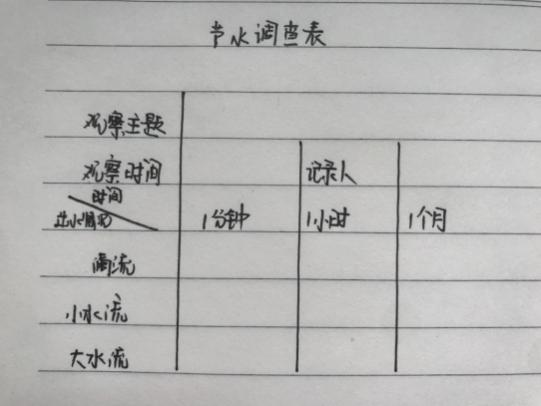 节水调查表
观察主题
观察时间 记录人
时间
出水情况 1分钟 1小时 1个月
滴流
小水流
大水流